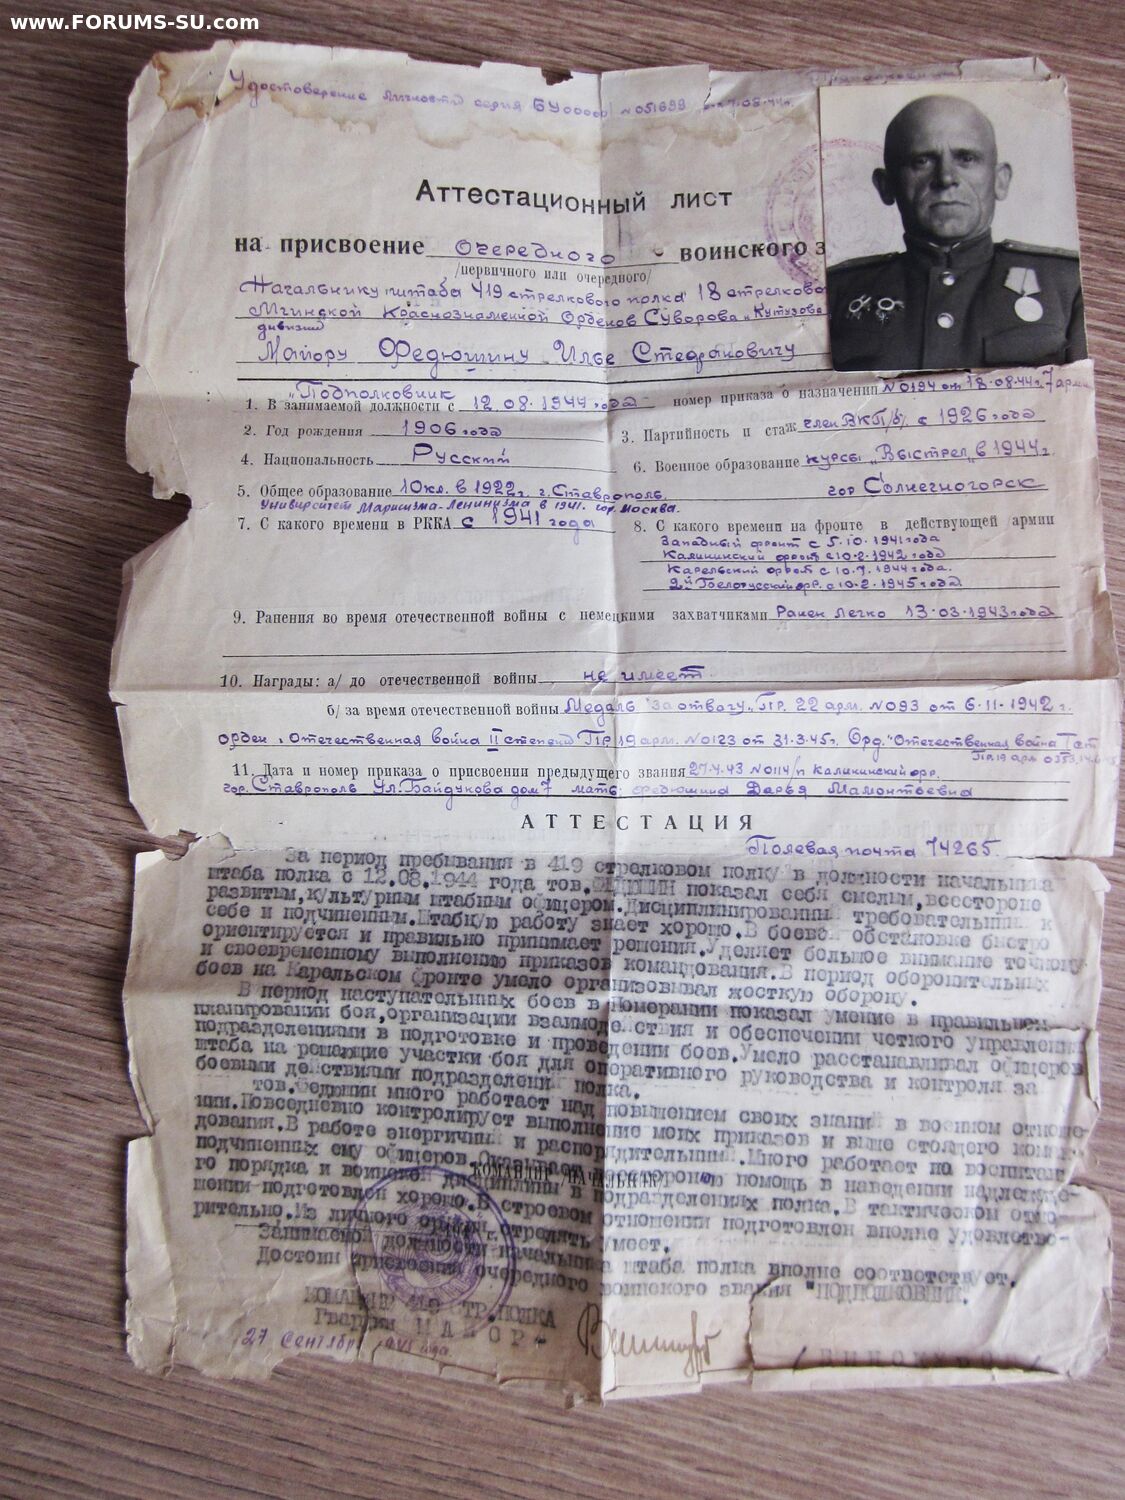 www.FORUMS-SU.com
Удостоверение личности серия БУ00000 № 051699
Аттестационный лист
на присвоение очередного воинского з
/первичного или очередного/
Начальнику штаба 419 стрелкового полка 18 стрелково
Мгинской Краснознаменной Орденов Суворова и Кутузова
дивизии
Майору Федюшину Илье Стефановичу
„Подполковник
1. В занимаемой должности с 12.08.1944 года номер приказа о назначении № 0194 от 18.08.44г. 7 арм
2. Год рождения 1906 года 3. Партийность и стаж член ВКП/б/ с 1926 года
4. Национальность Русский 6. Военное образование курсы „Выстрел„ в 1944г.
5. Общее образование 10 кл. в 1922г. г. Ставрополь. гор Солнечногорск
Университет Марксизма-Ленинизма в 1941. гор. Москва.
7. С какого времени в РККА с 1941 года 8. С какого времени на фронте в действующей армии
Западный фронт с 5.10.1941 года
Калининский фронт с 10.2.1942 года
Карельский фронт с 10.7.1944 года.
2й Белорусский фр. с 10.2.1945 года
9. Ранения во время отечественной войны с немецкими захватчиками Ранен Легко 13.03.1943 года
10. Награды: а/ до отечественной войны не имеет
б/ за время отечественной войны Медаль "За отвагу„ Пр. 22 арм. № 093 от 6.11.1942 г.
орден „Отечественная война II степени Пр. 19 арм. № 0123 от 31.3.45г. Орд. "Отечественная война I ст
Пр. 19 арм
11. Дата и номер приказа о присвоении предыдущего звания 27.4.43 № 0114/п Калининский фр.
гор. Ставрополь Ул. Байдукова дом 7 мать: Федюшина Дарья Мамонтьевна
АТТЕСТАЦИЯ
Полевая почта 74265.
За период пребывания в 419 стрелковом полку в должности начальника
штаба полка с 12.08.1944 года тов.ФЕДЮШИН показал себя смелым,всесторонe
развитым,культурным штабным офицером.Дисциплинированный требовательный к
себе и подчиненным.Штабную работу знает хорошо.В боевой обстановке быстро
ориентируется и правильно принимает решения.Уделяет большое внимание точному
и своевременному выполнению приказов командования.В период оборонительных
боев на Карельском фронте умело организовывал жосткую оборону.
В период наступательных боев в Померании показал умение в правильном
планировании боя,организации взаимодействия и обеспечении четкого управления
подразделениями в подготовке и проведении боев.Умело расстанавливал офицеров
штаба на решающие участки боя для оперативного руководства и контроля за
боевыми действиями подразделений полка.
тов.Федюшин много работает над повышением своих знаний в военном отноше-
нии.Повседневно контролирует выполнение моих приказов и выше стоящего коман-
дования.В работе энергичный и распорядительный.Много работает над воспитан
подчиненных ему офицеров.Оказывает всестороннюю помощь в наведении надлежаще-
КОМАНДИР /НАЧАЛЬНИК/
го порядка и воинской дисциплины в подразделениях полка.В тактическом отно-
шении подготовлен хорошо.В строевом отношении подготовлен вполне удовлетво-
рительно.Из личного оружия стрелять умеет.
Занимаемой должности начальника штаба полка вполне соответствует.
Достоин присвоения очередного воинского звания "ПОДПОЛКОВНИК".
КОМАНДИР 419 СТР.ПОЛКА
Гвардии МАЙОР-
27 Сентября года.